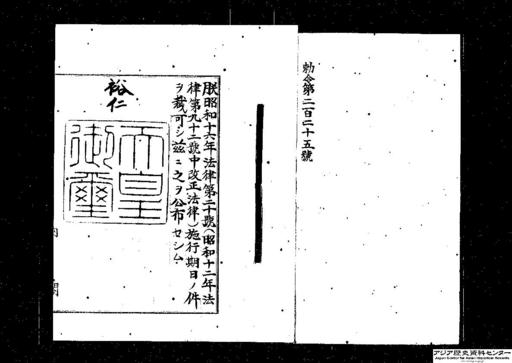 勅令第二百二十五號
朕昭和十六年法律第二十號(昭和十二年法
律第九十二號中改正法律)施行期日ノ件
ヲ裁可シ茲ニ之ヲ公布セシム
裕仁
天皇
御璽
アジア歴史資料センター
Japan Center for Asian Historical Records